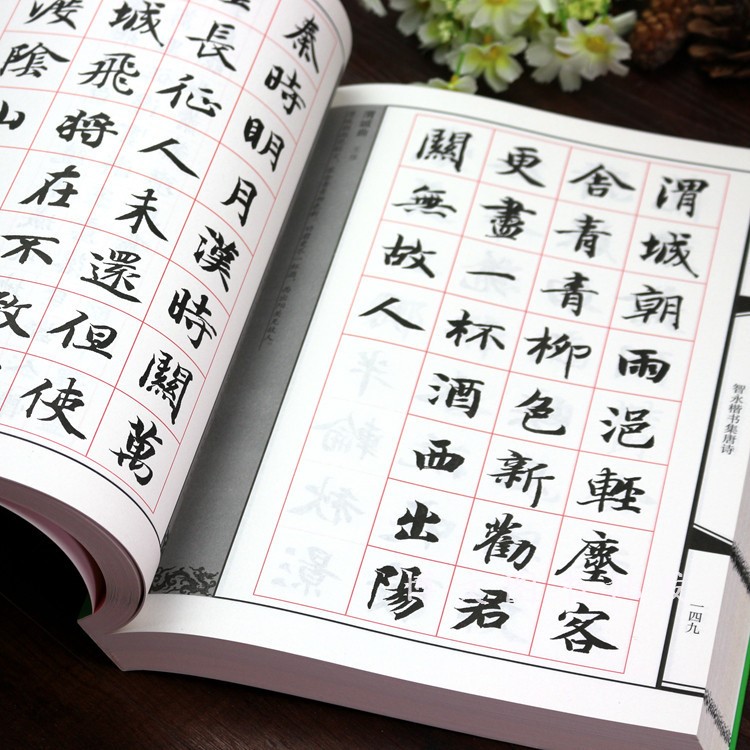 秦時明月漢時關萬
長征人未還但使
城飛將在不教
渡陰山
智永楷书集唐诗
一四九
渭城朝雨浥輕塵客
舍青青柳色新勸君
更盡一杯酒西出陽
關無故人
渭城曲